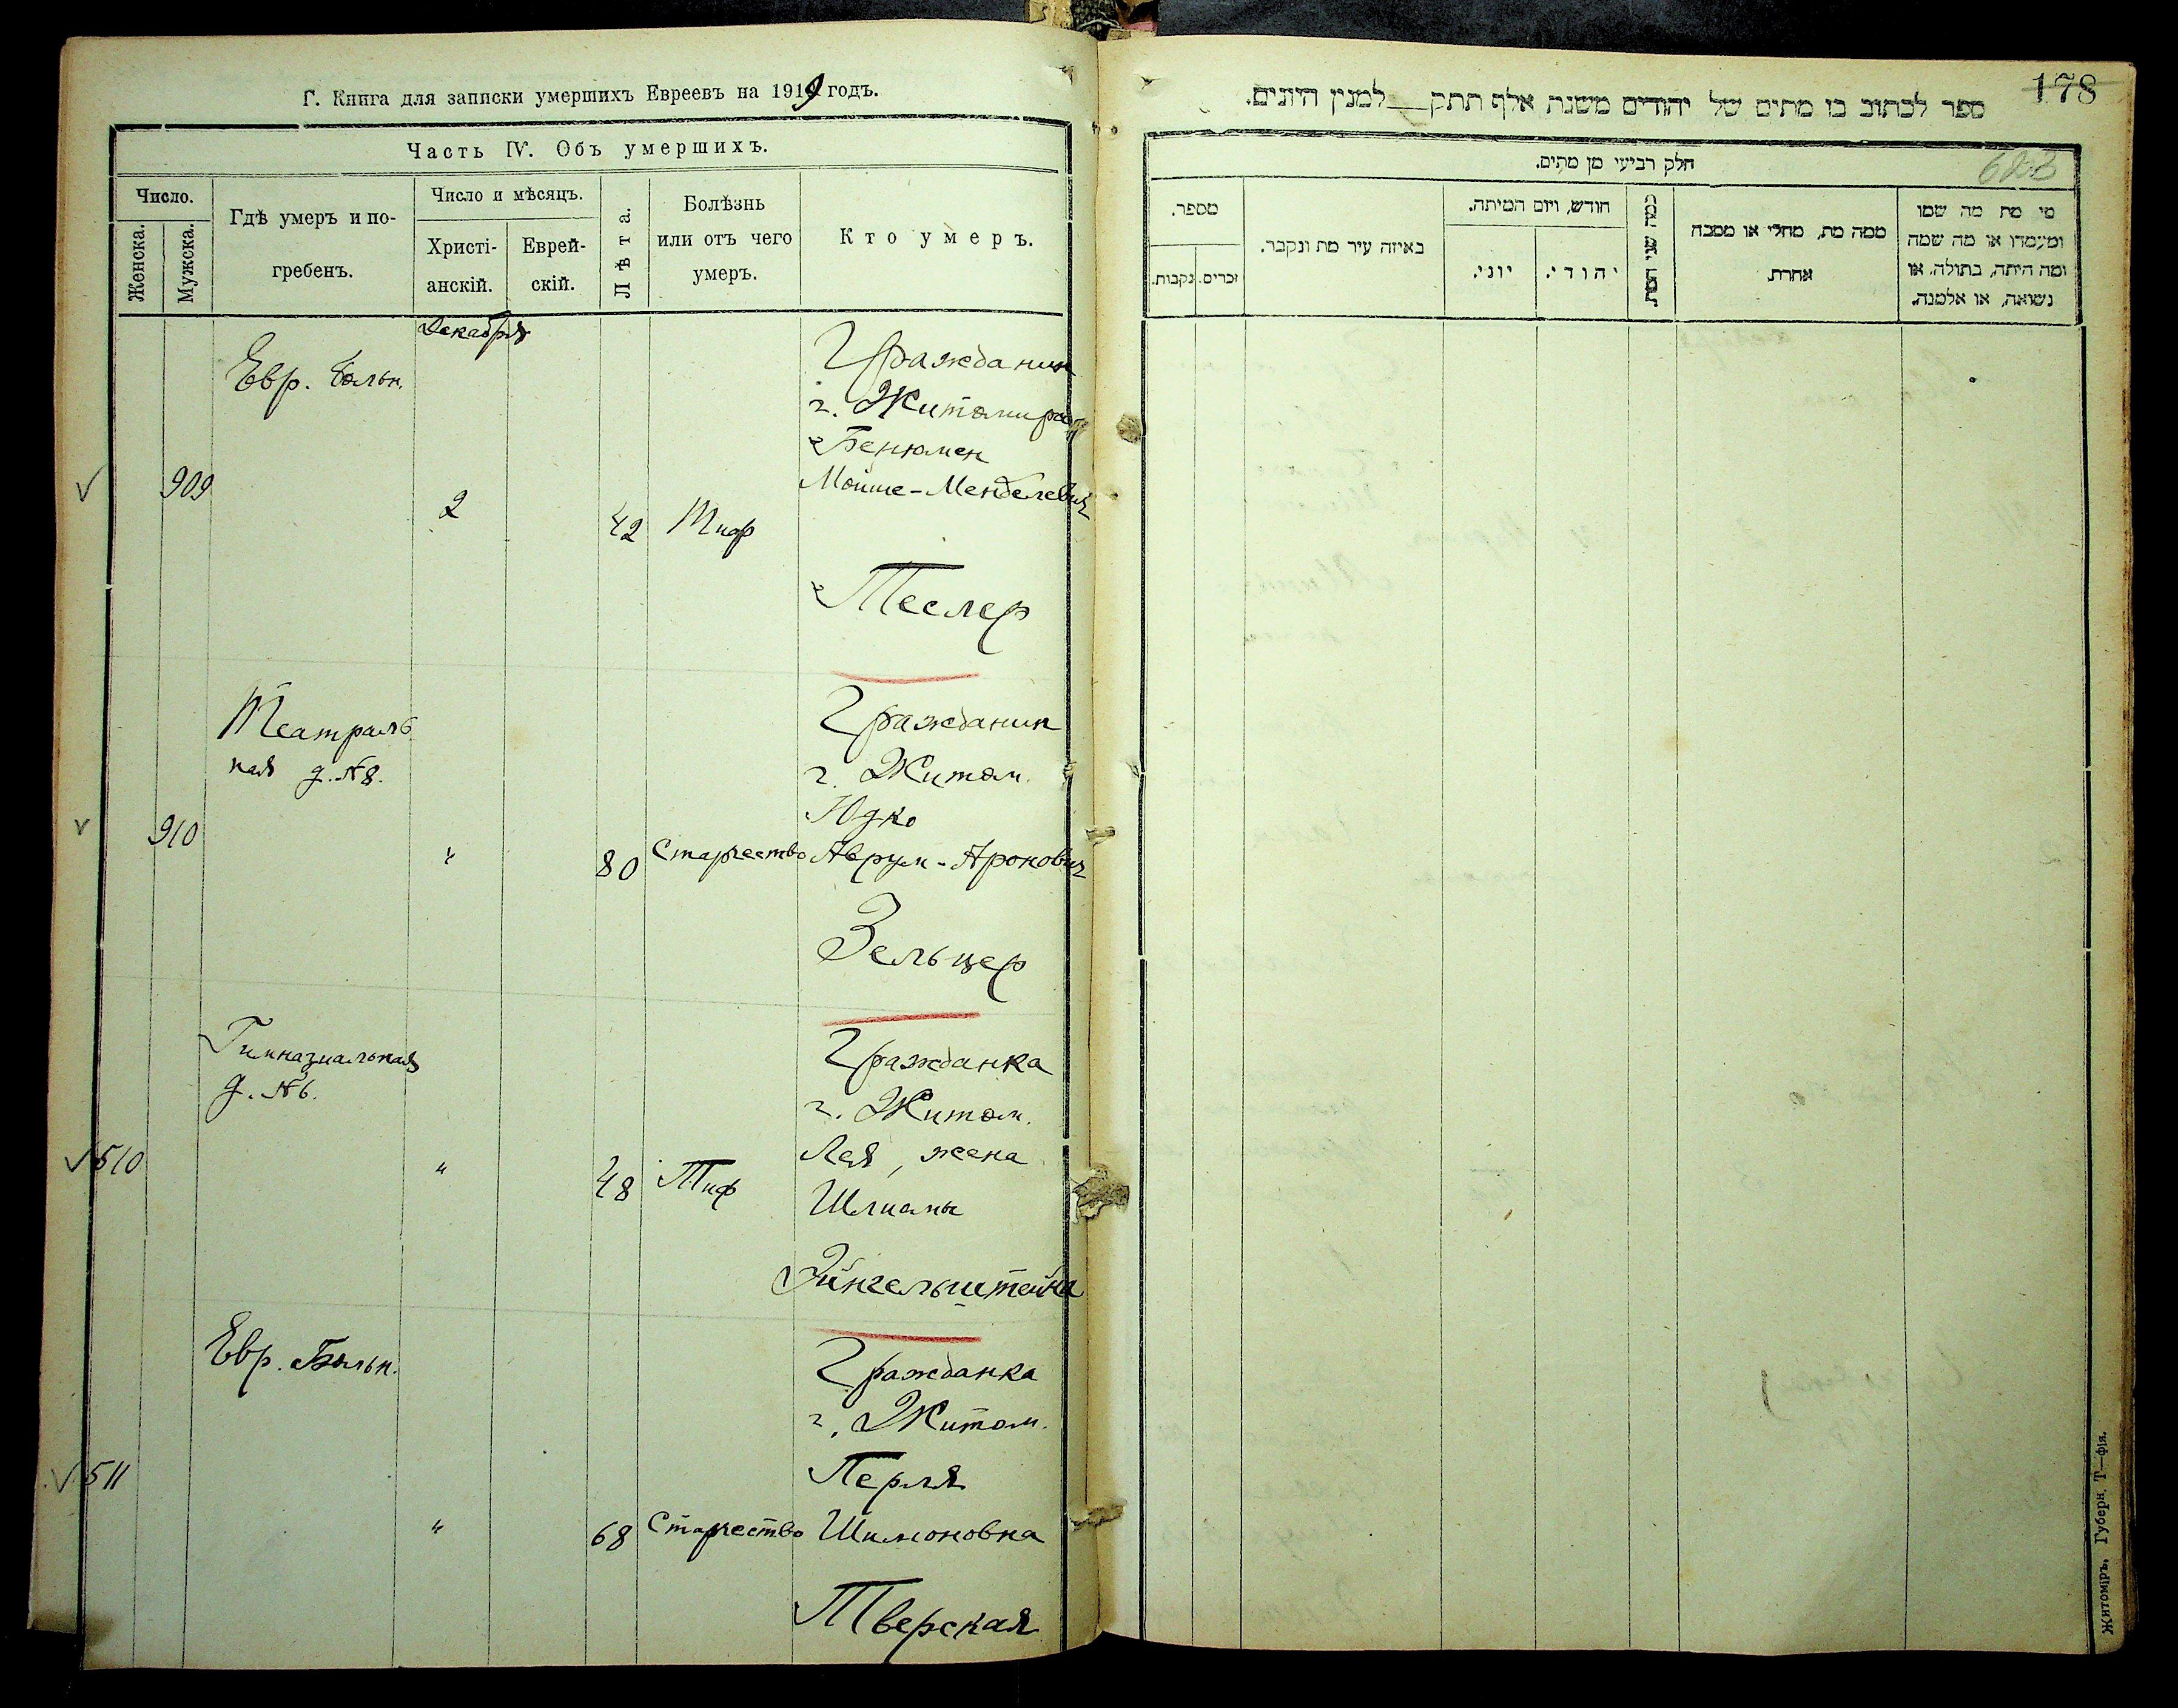 Г. Книга для записки умершихъ Евреевъ на 1919 годъ.
Часть IV. Объ умершихъ.
Число.
Женска.
Мужска.
Гдѣ умеръ и по-
гребенъ.
Число и мѣсяцъ.
Христі-
анскій.
Еврей-
скій.
Лѣта.
Болѣзнь
или отъ чего
умеръ.
Кто умеръ.
Декабря
Евр. больн.
909
2
42
Тиф
Гражданин
г. Житомира
Бенюмен
Мойше-Менделевич
Теслер
Театраль
ная д. № 8.
910
"
80
Старчество
Гражданин
г. Житом.
Юдко
Аврум-Аронович
Зельцер
Гимназиальная
д. № 6.
510
"
48
Тиф
Гражданка
г. Житом.
Лея, жена
Шлиомы
Эйнгельштейна
Евр. Больн.
511
"
68
Старчество
Гражданка
г. Житом.
Перля
Шимоновна
Тверская
178
ספר לכתוב בו מתים של יהודים משנת אלף תתק__ למנין היונים.
חלק רביעי מן מתים.
מספר.
זכרים.
נקבות.
באיזה עיר מת ונקבר.
חודש, ויום המיתה.
יוני.
יהודי.
כמה שני המת
ממה מת, מחלי או מסבה
אחרת.
מי מת מה שמו
ומעמדו או מה שמה
ומה היתה, בתולה, או
נשואה, או אלמנה.
Житоміръ, Губерн. Т—фія.